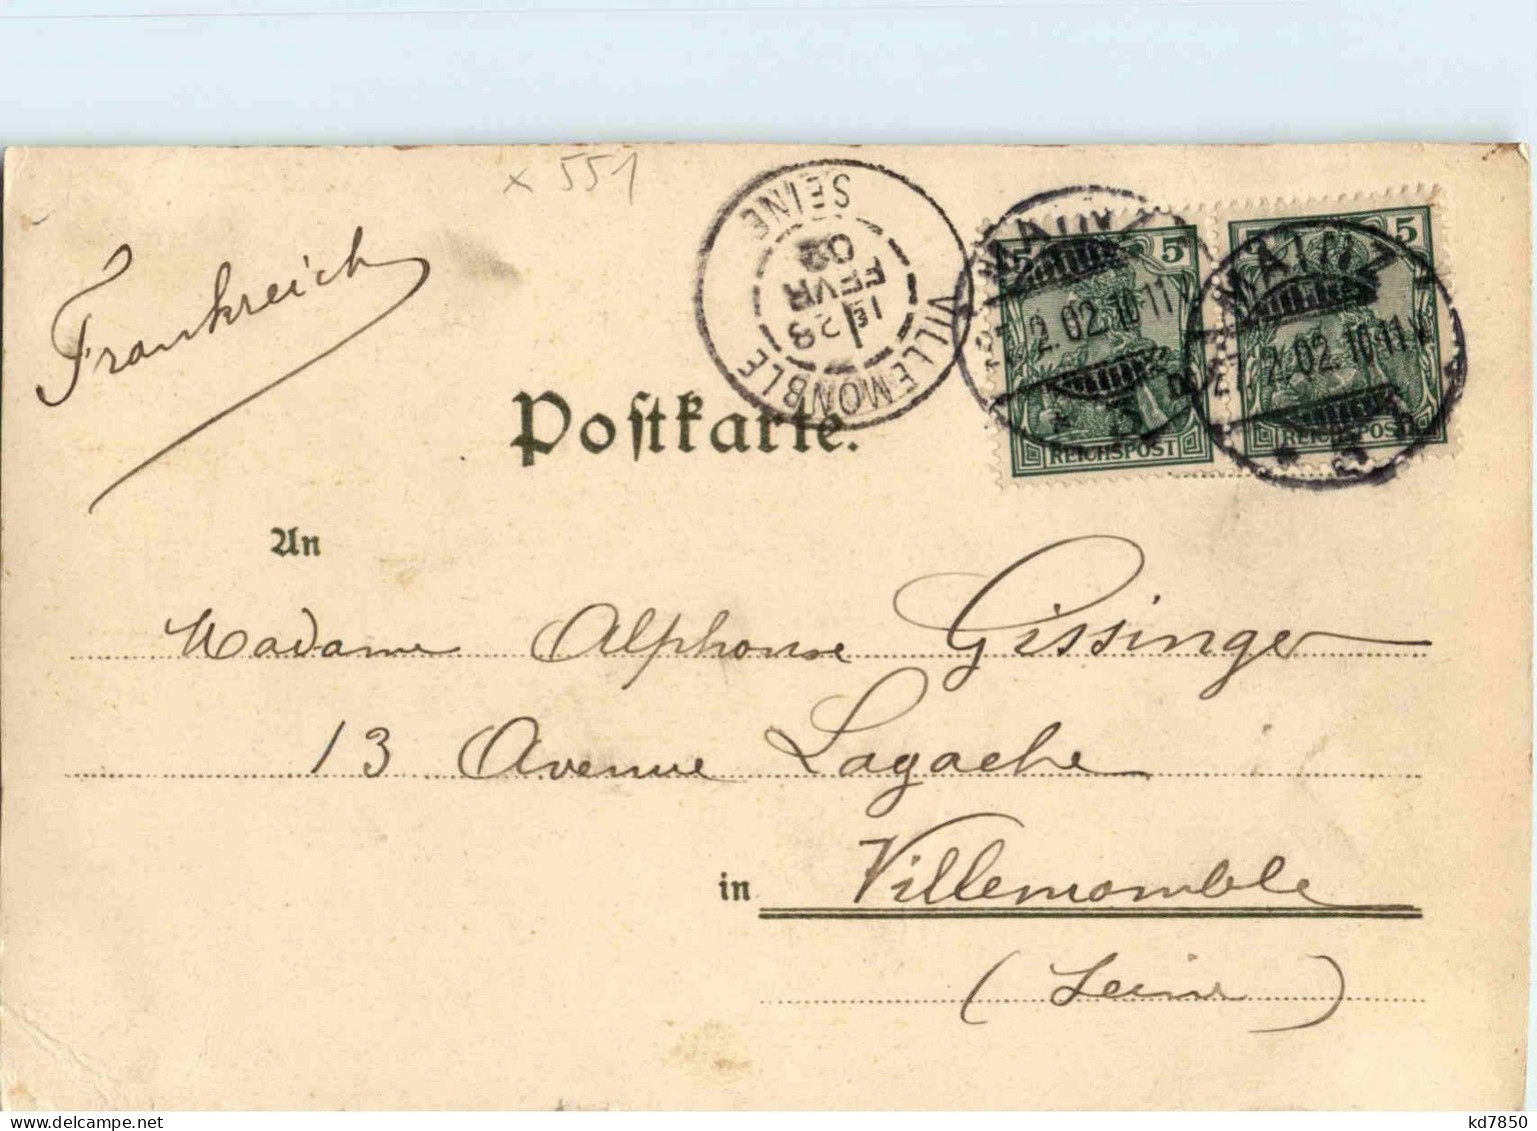 x 551
Frankreich
VILLEMONBLE
SEINE
1E
28
FEVR
02
MAINZ
2.02.10-11V
5
REICHSPOST
MAINZ
2.02.10-11V
5
REICHSPOST
Postkarte.
An
Madame Alphonse Gissinger
13 Avenue Lagache
in Villemomble
(Seine)
kd7850